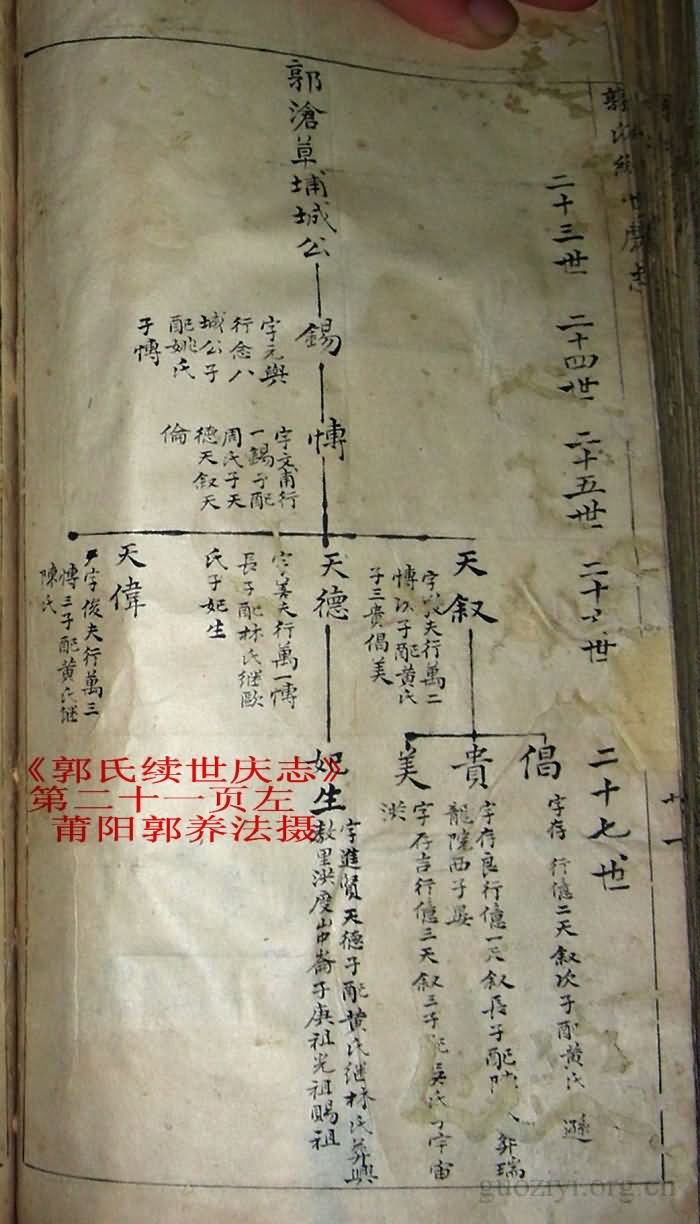 郭氏續世慶志
二十三世
二十四世
二十五世
二十世
二十七世
廿一
郭滄草埔城公
錫
字元與
行念八
城公子
配姚氏
子愽
愽
字文甫行
一錫子配
周氏子天
德天叙天
倫
天叙
夫行萬二
愽次子配黃氏
子三貴倡美
天德
字善夫行萬一愽
長子配林氏繼歐
氏子妃生
天偉
字俊夫行萬三
愽三子配黃氏繼
陳氏
倡
字存 行億二天叙次子配黃氏 遜
貴
字存良行億一天叙長子配陳 葬瑞
龍院西子晏
美
字存吉行億三天叙三子配吳氏子宇宙
洪
妃生
字進賢天德子配黃氏繼林氏葬興
教里洪度山中崙子庚祖光祖賜祖
《郭氏续世庆志》
第二十一页左
莆阳郭养法摄
guoziyi.org.cn